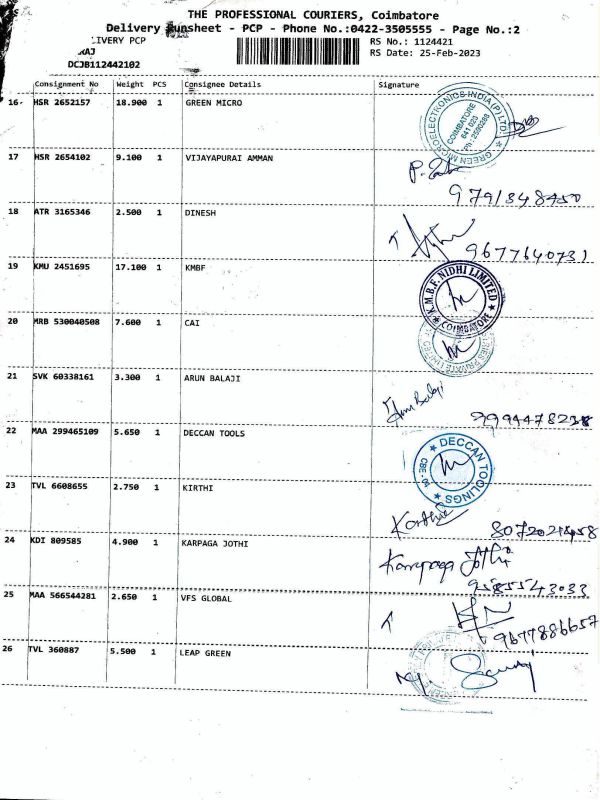 THE PROFESSIONAL COURIERS, Coimbatore
Delivery Runsheet - PCP - Phone No.:0422-3505555 - Page No.:2
LIVERY PCP RS No.: 1124421
RAJ RS Date: 25-Feb-2023
DCJB112442102
Consignment No Weight PCS Consignee Details Signature
16 HSR 2652157 18.900 1 GREEN MICRO
GREEN MICROELECTRONICS INDIA (P) LTD.
COIMBATORE
641 023
17 HSR 2654102 9.100 1 VIJAYAPURAI AMMAN
18 ATR 3165346 2.500 1 DINESH
9677640731
19 KMU 2451695 17.100 1 KMBF
K.M.B.F. NIDHI LIMITED
COIMBATORE
20 MRB 530040508 7.600 1 CAI
21 SVK 60338161 3.300 1 ARUN BALAJI
Arun Balaji
22 MAA 299465109 5.650 1 DECCAN TOOLS
DECCAN TOOLINGS
23 TVL 6608655 2.750 1 KIRTHI
24 KDI 809585 4.900 1 KARPAGA JOTHI
Karpaga Jothi
25 MAA 566544281 2.650 1 VFS GLOBAL
9677886657
26 TVL 360887 5.500 1 LEAP GREEN